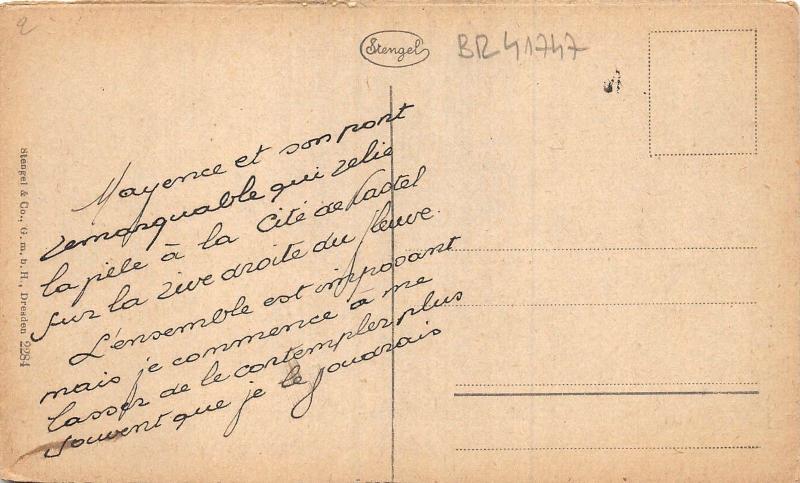 2
Stengel
BR 41747
Mayence et son pont
remarquable qui relie
la pile à la Cité de Kastel
sur la rive droite du fleuve.
L'ensemble est imposant
mais je commence à me
lasser de le contempler plus
souvent que je le voudrais
Stengel & Co., G. m. b. H., Dresden 2284